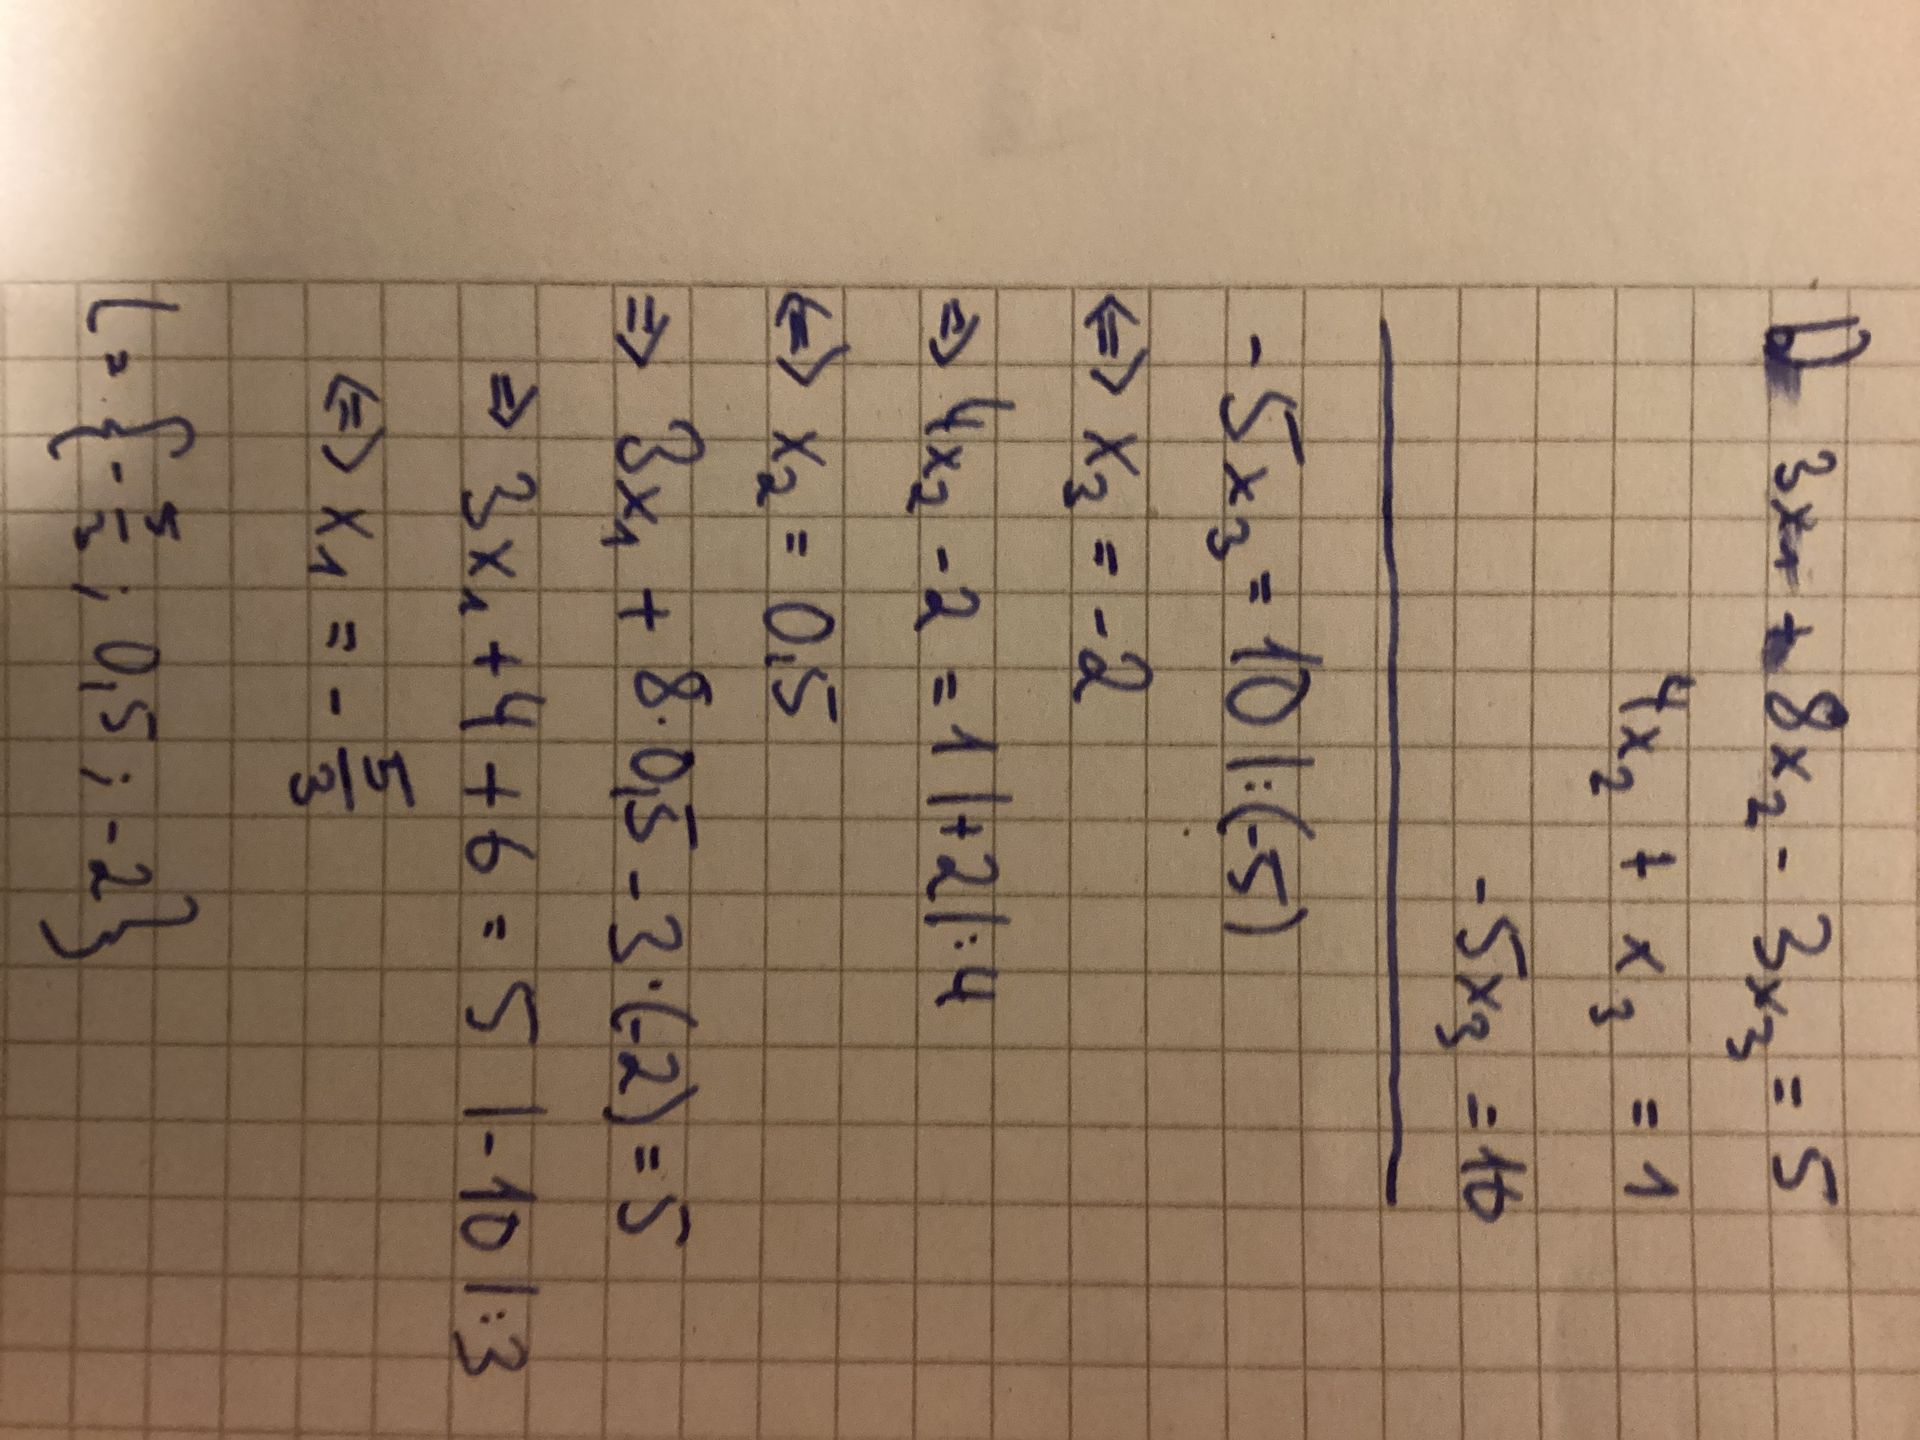 3x₁ + 8x₂ - 3x₃ = 5
4x₂ + x₃ = 1
-5x₃ = 10
-5x₃ = 10 |:(-5)
⇔ x₃ = -2
⇒ 4x₂ - 2 = 1 |+2 |:4
⇔ x₂ = 0,5
⇒ 3x₁ + 8·0,5 - 3·(-2) = 5
⇒ 3x₁ + 4 + 6 = 5 |-10 |:3
⇔ x₁ = -5/3
L = {-5/3; 0,5; -2}